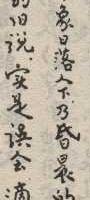 象日落人下乃昏晨的
的旧说,实是误会。滴